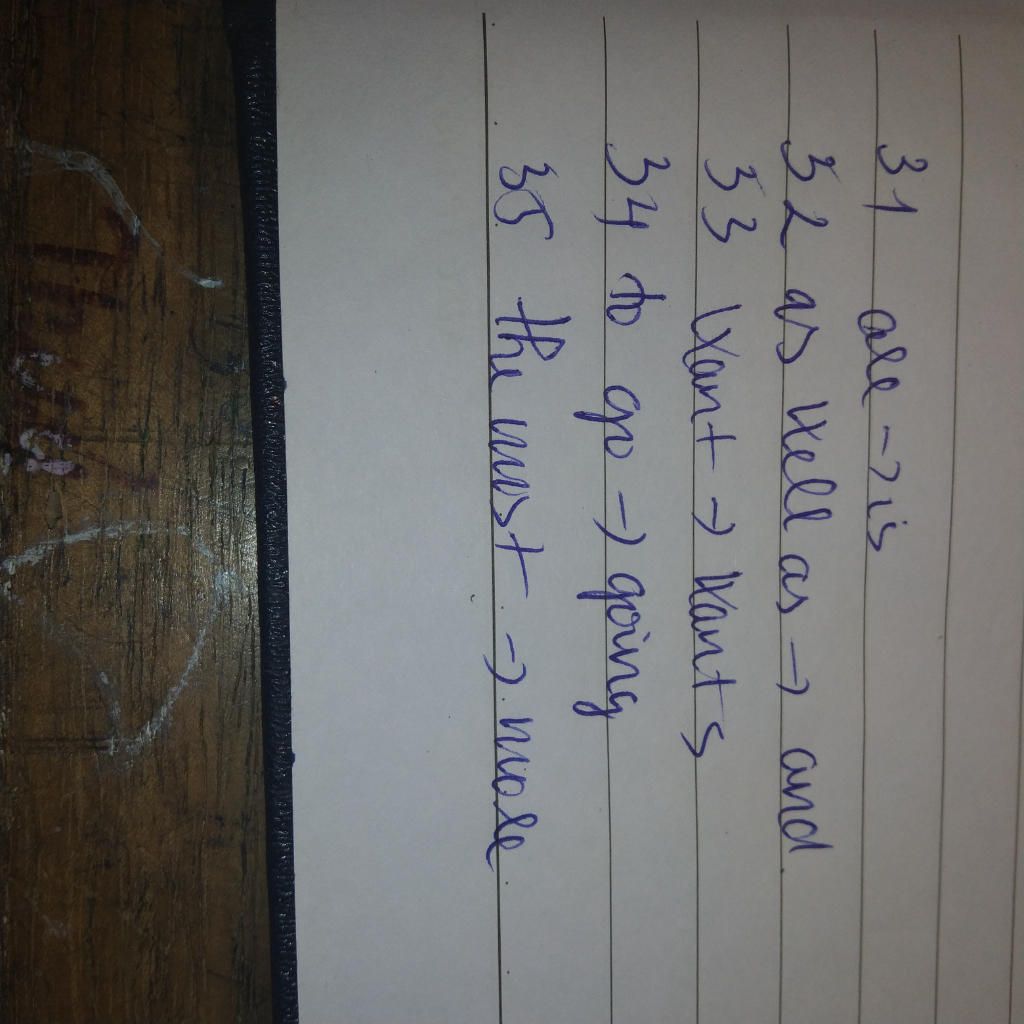 31 are → is
32 as well as → and
33 want → wants
34 to go → going
35 the most → more